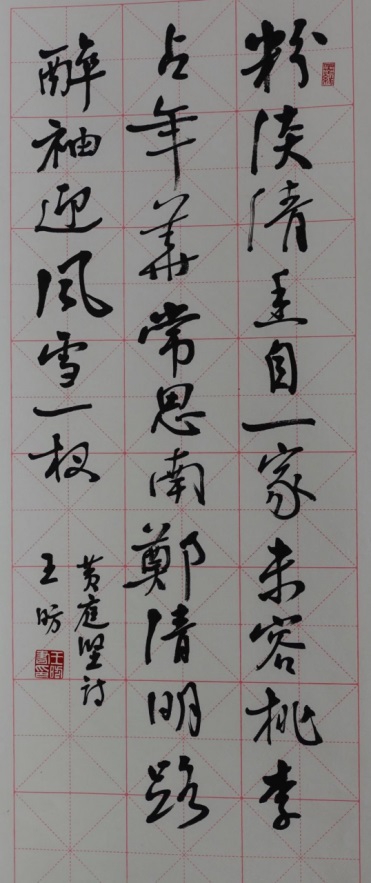 粉淡清香自一家未容桃李
占年華常思南鄭清明路
醉袖迎风雪一杈
黄庭坚诗
王昉